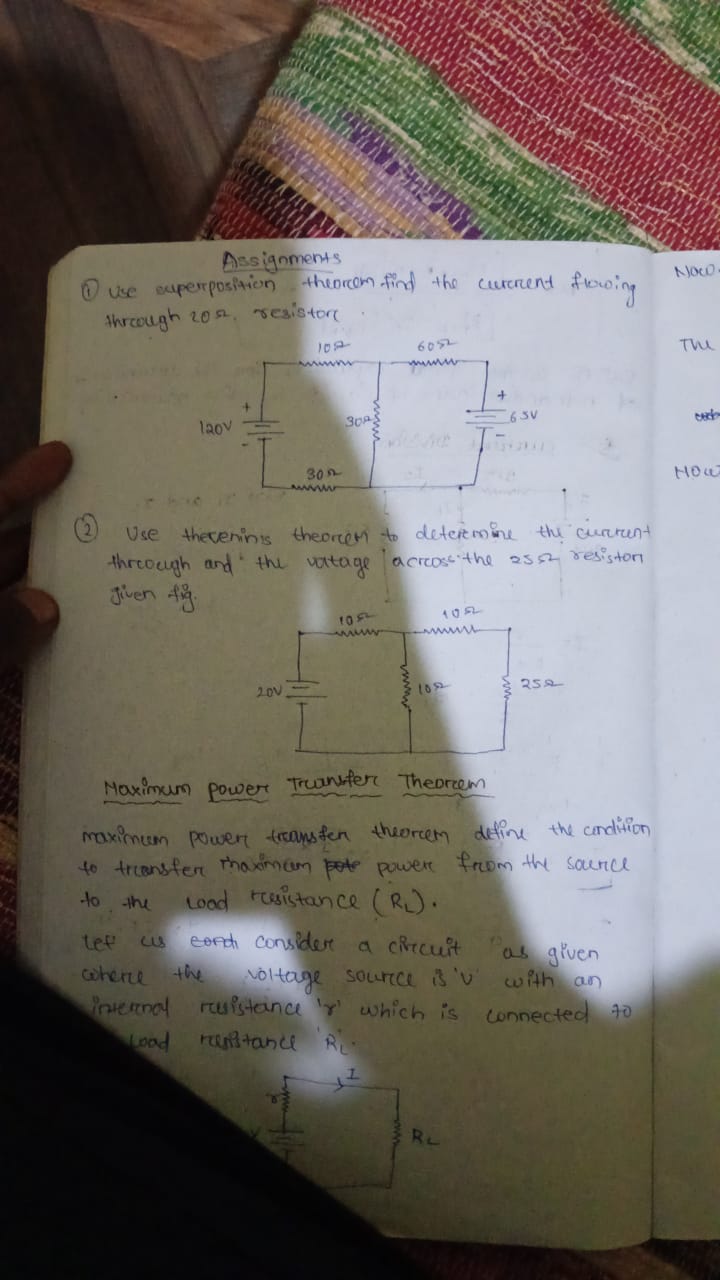 Assignments
① Use superposition theorem find the current flowing
through 20Ω. resistor
10Ω 60Ω
+ +
120V 30Ω 65V
- -
30Ω
② Use thevenins theorem to determine the current
through and the votage across the 25Ω resistor
given fig.
10Ω 10Ω
20V 10Ω 25Ω
Maximum power Transfer Theorem
maximum power transfer theorem define the condition
to transfer maximum power from the source
to the load resistance (RL).
Let us consider a circuit as given
where the voltage source is 'v' with an
internal resistance 'r' which is connected to
load resistance 'RL'.
I
r
V RL
Now
The
Now